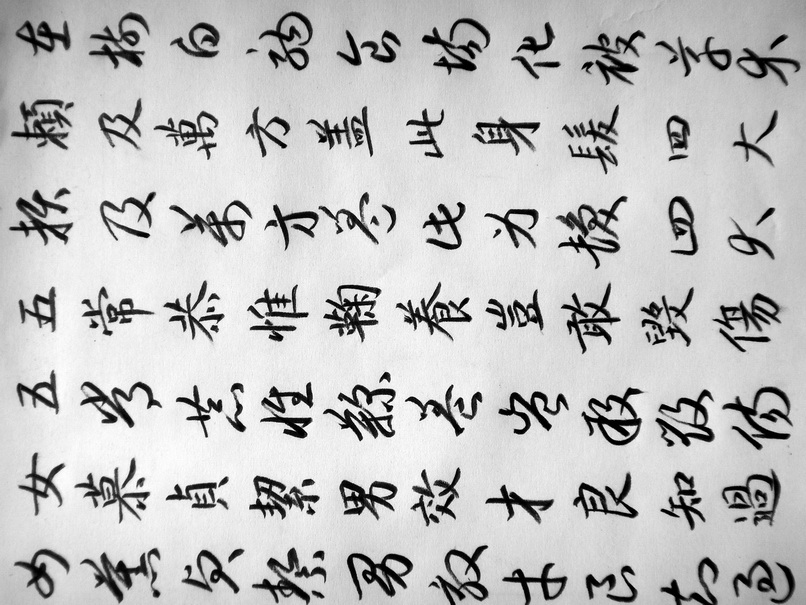 在樹白駒食場化被草木
賴及萬方蓋此身髮四大
賴及萬方蓋此身髮四大
五常恭惟鞠養豈敢毀傷
五常恭惟鞠養豈敢毀傷
女慕貞絜男效才良知過
女慕貞絜男效才良知過